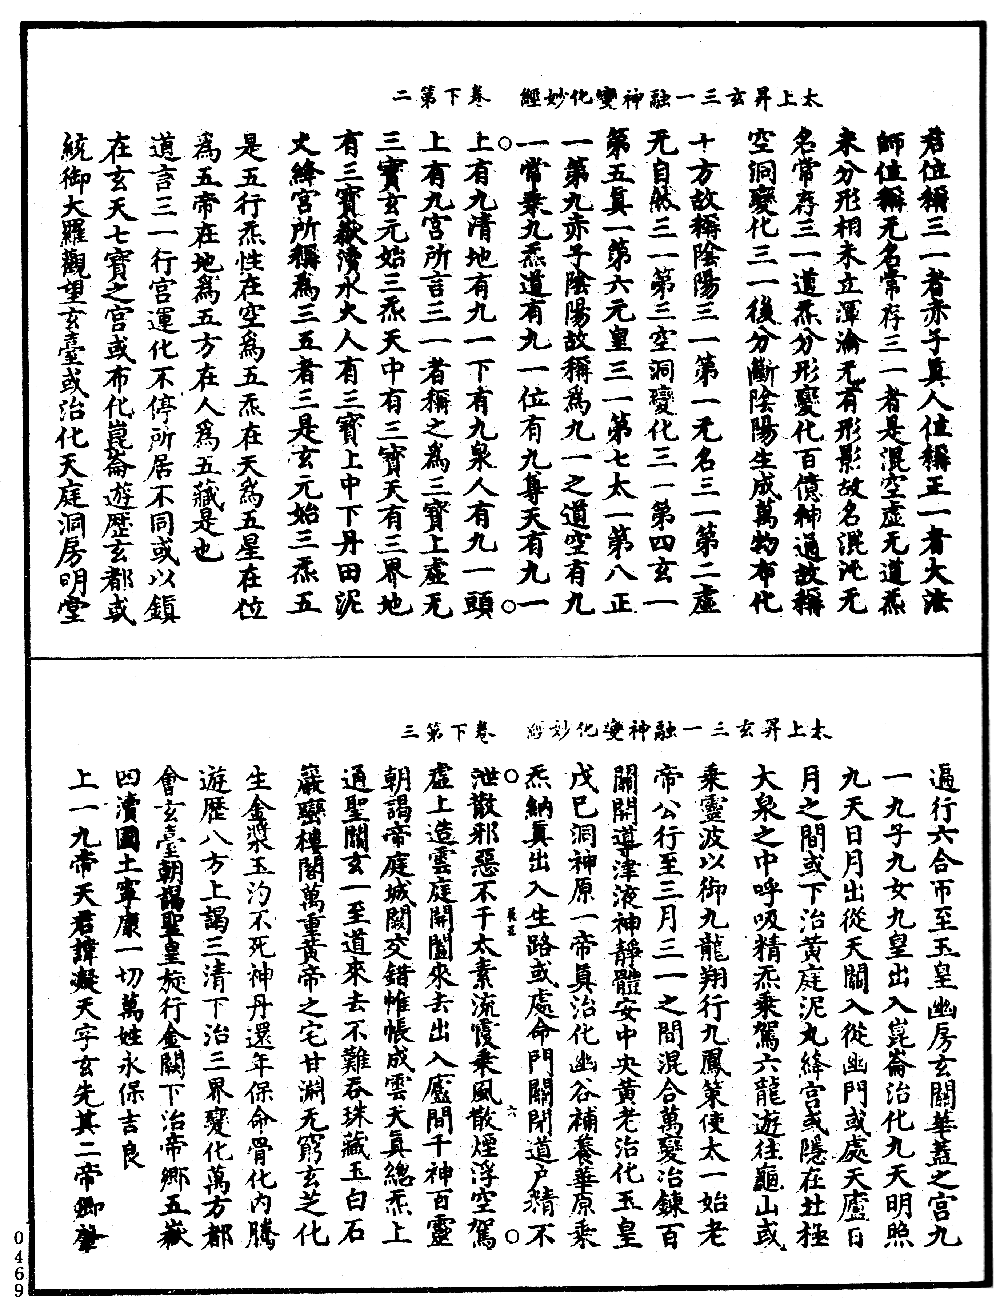 太上昇玄三一融神變化妙經　卷下第二
君位稱三一者赤子真人位稱正一者大法
師位稱无名常存三一者是混空虛无道炁
未分形相未立渾淪无有形影故名混沌无
名常存三一道炁分形變化百億神通故稱
空洞變化三一後分斷陰陽生成萬物布化
十方故稱陰陽三一第一无名三一第二虛
无自然三一第三空洞變化三一第四玄一
第五真一第六元皇三一第七太一第八正
一第九赤子陰陽故稱為九一之道空有九
一常乘九炁道有九一位有九尊天有九一
上有九清地有九一下有九泉人有九一頭
上有九宮所言三一者稱之為三寶上虛无
三寶玄元始三炁天中有三寶天有三界地
有三寶嶽瀆水火人有三寶上中下丹田泥
丸絳宮所稱為三五者三是玄元始三炁五
是五行炁性在空為五炁在天為五星在位
為五帝在地為五方在人為五藏是也
道言三一行宮運化不停所居不同或以鎮
在玄天七寶之宮或布化崑崙遊歷玄都或
統御大羅觀望玄臺或治化天庭洞房明堂
太上昇玄三一融神變化妙經　卷下第三
遍行六合帀至玉皇幽房玄關華蓋之宮九
一九子九女九皇出入崑崙治化九天明照
九天日月出從天關入從幽門或處天廬日
月之間或下治黃庭泥丸絳宮或隱在扗極
大泉之中呼吸精炁乘駕六龍遊往龜山或
乘靈波以御九龍翔行九鳳策使太一始老
帝公行至三月三一之間混合萬變治鍊百
關開導津液神靜體安中央黃老治化玉皇
戊巳洞神原一帝真治化幽谷補養華原乘
炁納真出入生路或處命門關閉道戶積不
泄散邪惡不干太素流霞乘風散煙浮空駕
虛上造雲庭開闔來去出入廬間千神百靈
朝謁帝庭城闕交錯帷帳成雲天真總炁上
通聖關玄一至道來去不難吞珠藏玉白石
巖巒樓閣萬重黃帝之宅甘淵无窮玄芝化
生金漿玉汋不死神丹還年保命骨化內騰
遊歷八方上謁三清下治三界變化萬方都
會玄臺朝謁聖皇旋行金闕下治帝鄉五嶽
四瀆國土寧康一切萬姓永保吉良
上一九帝天君諱凝天字玄先其二帝卿肇
六
0469